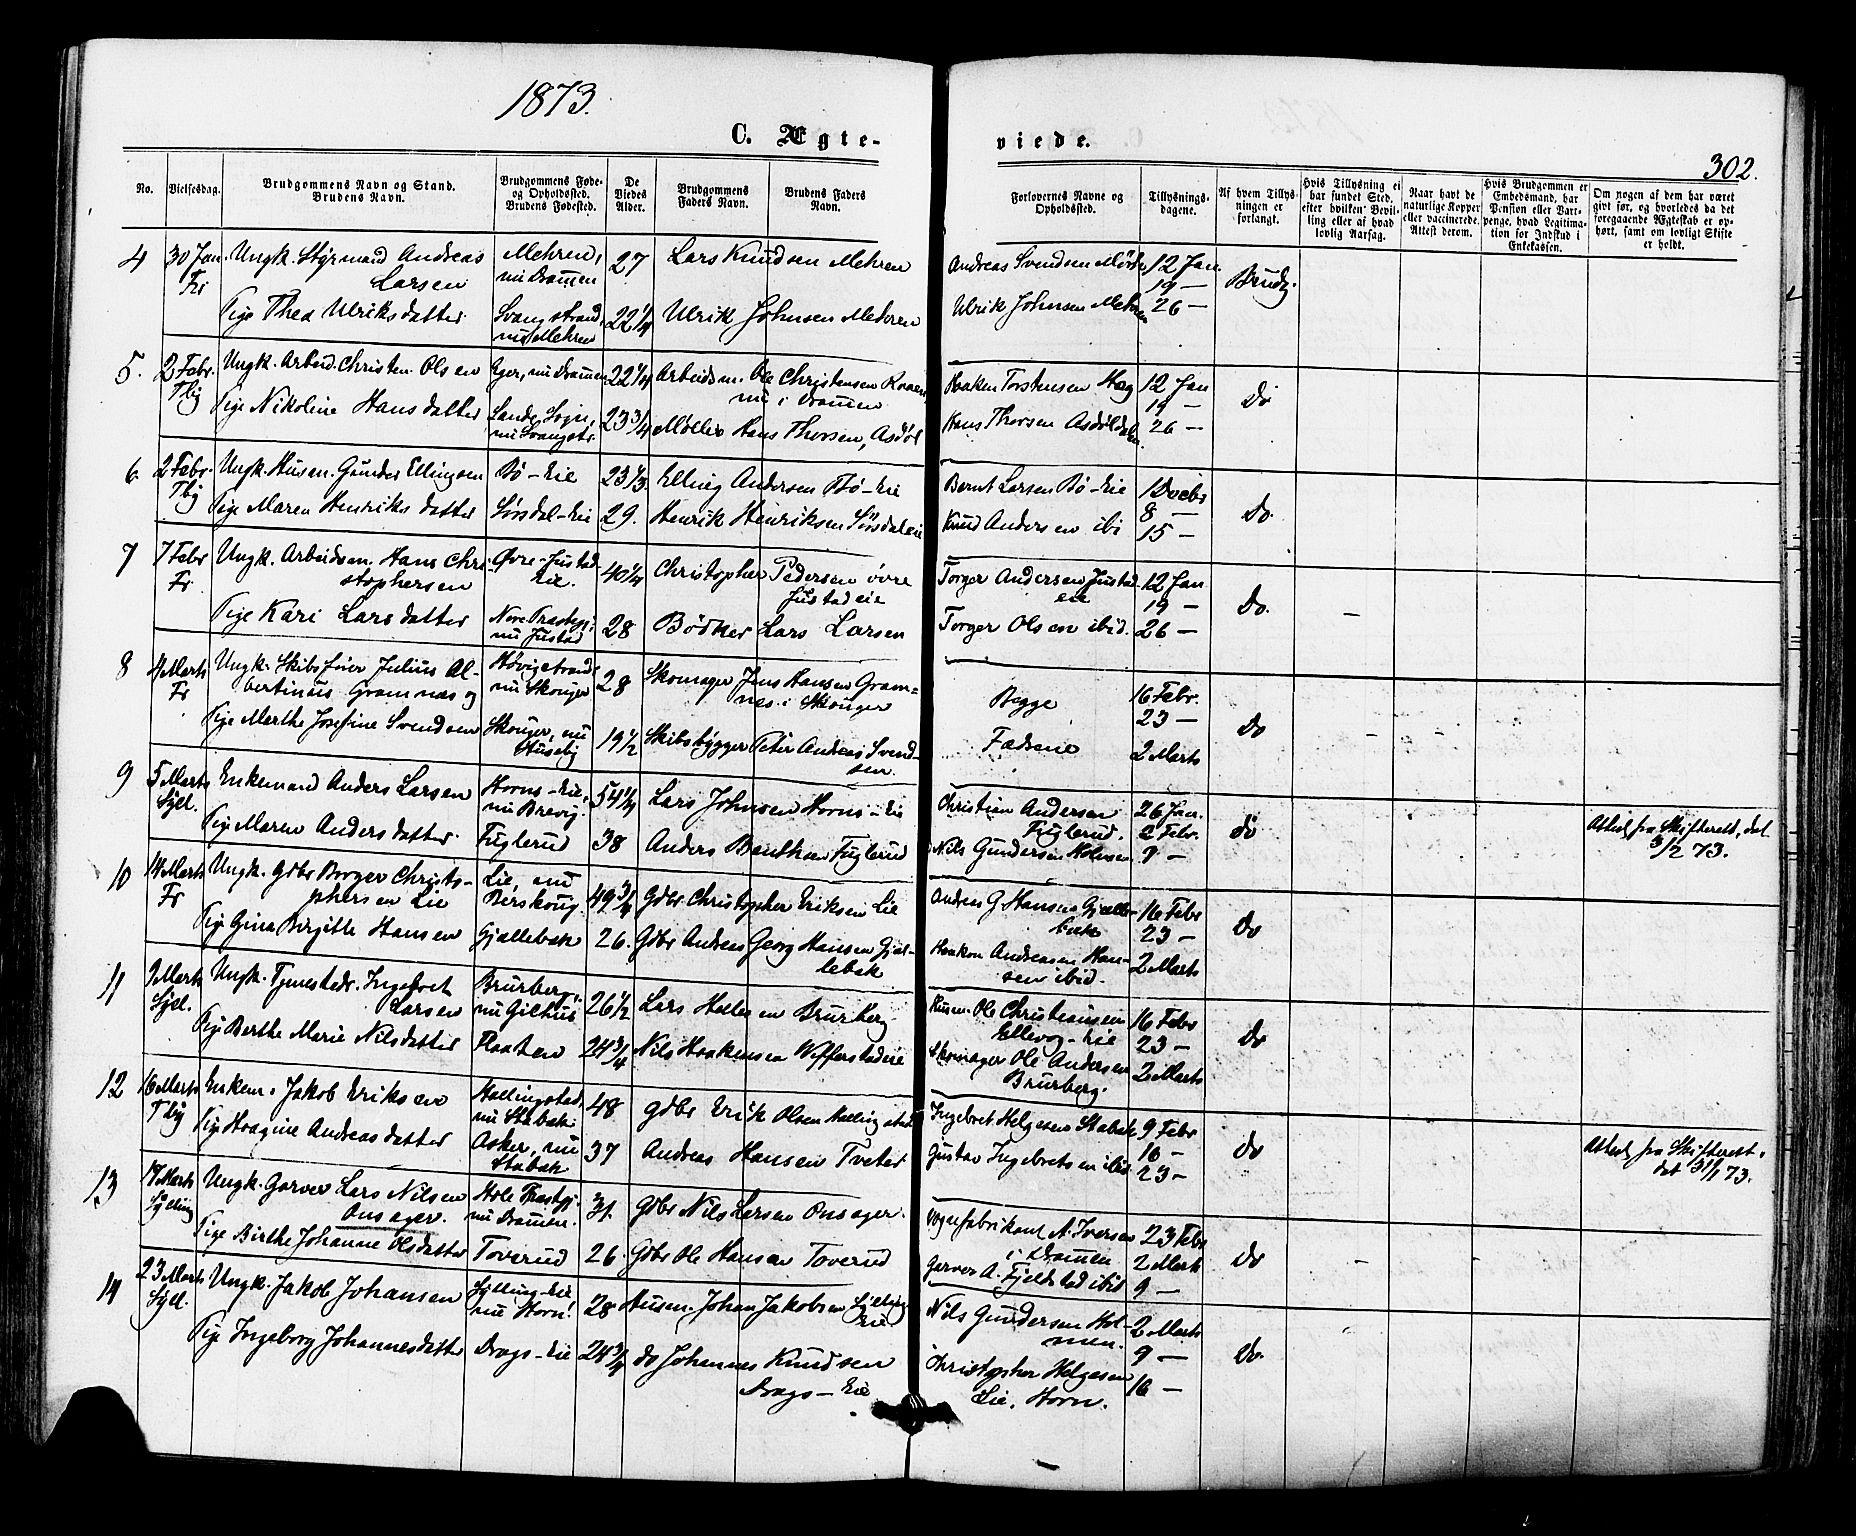 1873.
C. Ægte-
viede.
302.
No.
Vielsesdag.
Brudgommens Navn og Stand.
Brudens Navn.
Brudgommens Føde-
og Opholdssted.
Brudens Fødested.
De
Viedes
Alder.
Brudgommens
Faders Navn.
Brudens Faders
Navn.
Forlovernes Navne og
Opholdssted.
Tillysnings-
dagene.
Af hvem Tillys-
ningen er
forlangt.
Hvis Tillysning ei
har fundet Sted,
efter hvilken Bevil-
ling eller af hvad
lovlig Aarsag.
Naar havt de
naturlige Kopper
eller vaccinerede.
Attest derom.
Hvis Brudgommen er
Embedsmand, har
Pension eller Vart-
penge, hvad Legitima-
tion for Indskud i
Enkekassen.
Om nogen af dem har været
givt før, og hvorledes da det
foregaaende Ægteskab er op-
hørt, samt om lovligt Skifte
er holdt.
4 30 Jan. Ungk. Styrmand Andreas Mehren, 27 Lars Knudsen Mehren Andreas Svendsen 12 Jan. Brudg.
Fr Larsen nu Dramen 19 —
Pige Thea Ulriksdatter Svangstrand, 22 1/4 Ulrik Johnsen Mehren Ulrik Johnsen Mehren 26 —
nu Mehren
5. 2 Febr. Ungk. Arbeid. Christen Olsen Eger, nu Dramen 22 1/4 Arbeidsm. Ole Christensen Haaken Torstensen Hæg 12 Jan Do
Tbg nu i Dramen 19 —
Pige Nikoline Hansdatter Sande Sogn, 23 3/4 Møller Hans Thorsen, Asdøl Hans Thorsen Asdøldalen 26 —
nu Svangstr
6. 2 Febr. Ungk. Husm. Gunder Ellingsen Bø-Eie 23 1/3. Elling Andersen Bø-Eie Bernt Larsen Bø-Eie 1 Do
Tbg 8 —
Pige Maren Henriksdatter Sørsdal-Eie 29. Henrik Henriksen Sørsdaleie Knud Andersen ibi 15 —
7 7 Febr Ungk. Arbeidsm. Hans Chri- Øvre-Justad 40 1/4 Christopher Pedersen øvre Torger Andersen Justad 12 Jan Do. —
Fr. stophersen Eie. Justadeie eie 19 —
Pige Kari Larsdatter Nore Præstegj. 28 Bødker Lars Larsen Torger Olsen ibid. 26 —
nu Justad
8 4 Marts Ungk. Skibsfører Julius Al- Høvigstrand, 28 Skomager Jens Hansen Gram- Begge 16 Febr. Do - -
Fr bertinus Gramnæs og nu Skouger næs i Skouger 23 —
Pige Marthe Josefine Svendsen Skouger, nu 19 1/2 Skibsbygger Peter Andreas Svend- Fædrene 2 Marts
Huseby sen
9 5 Marts Enkemand Anders Larsen Horns-Eie, 54 1/4 Lars Johnsen Horns-Eie Christian Andersen 26 Jan. do Attest fra Skifterett, dat.
Sjel. nu Brevig. Fuglerud. 2 Febr. 3/2 73.
Pige Maren Andersdatter. Fuglerud 38 Anders Fuglerud Nils Gundersen Holmen 9 —
10 14 Marts Ungk. Gdbr Borger Christo- Lie, nu 49 3/4 Gdbr Christopher Eriksen Lie Andreas G. Hansen Gjelle- 16 Febr Do
Fr phersen Lie Berskoug. bæk 23 —
Pige Gina Birgitte Hansen Gjellebæk 26. Gdbr Andreas Georg Hansen Gjel- Haakon Andreasen Han- 2 Marts
lebæk sen ibid.
11 9 Marts Ungk. Tjenestedr. Ingebret Brurberg, 26 1/2 Lars Brurberg Husm. Ole Christiansen 16 Febr Do
Sjel. Larsen nu Gilhus Eie 23 —
Pige Berthe Marie Nilsdatter Plaaten 24 3/4 Nils Haakensen Wefferstadeie Skomager Ole Andersen 2 Marts
Brurberg.
12 16 Marts Enkem. Jakob Eriksen Hallingstad, 48 Gdbr Erik Olsen Hallingstad Ingebret Helgesen Stabæk 9 Febr Do Attest fra Skifterett.
Tbg nu Stabæk 16 — dat 31/1 73.
Pige Haagine Andreasdatter Asker, nu 37 Andreas Hansen Tveter Gustav Ingebretsen ibid 23 —
Stabæk
13 17 Marts Ungk. Garver Lars Nilsen Hole Præstgj. 31. Gdbr Nils Larsen Onsager. Vognfabrikant A. Iversen 23 Febr Do - -
Sylling Onsager. nu Dramen. i Dramen 2 Marts
Pige Birthe Johanne Olsdatter Toverud 26. Gdbr Ole Hansen Toverud Garver A. Fjeldstad ibid 9 —
14 23 Marts Ungk. Jakob Johansen Sylling-Eie 28 Husm. Johan Jakobsen Sylling- Nils Gundersen Hol- 2 Marts Do.
Sjel. nu Horn. Eie men. 9 —
Pige Ingeborg Johannesdatter Drags-Eie 24 3/4 do Johannes Knudsen Christopher Helgesen 16 —
Drags-Eie Lie, Horn.